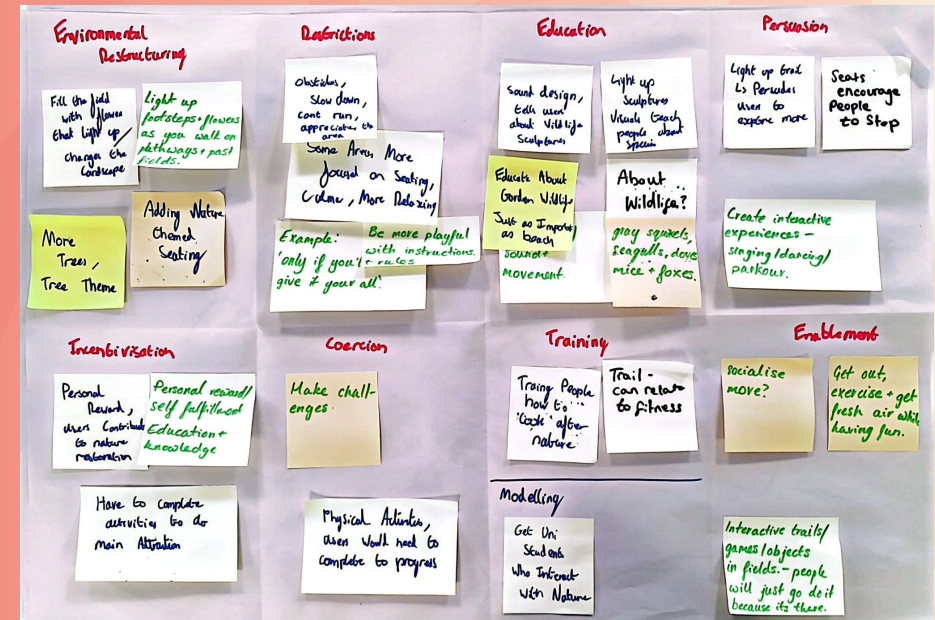 Environmental
Restructuring
Fill the field
with flowers
that light up/
changes the
landscape
Light up
footsteps+flowers
as you walk on
pathways + past
fields.
More
Trees,
Tree Theme
Adding Nature
themed
Seating
Restrictions
Obstacles,
Slow down,
cant run,
appreciates the
area
Some Areas More
focused on Seating,
Calmer, More Relaxing
Example:
'only if you'll
give it your all'
Be more playful
with instructions.
+ rules
Education
Sound design,
tells users
about Wildlife
Sculptures
Light up
Sculptures
Visuals teach
people about
Species
Educate About
Garden Wildlife
Just as Important
as beach
sound+
movement.
About
Wildlife?
gray squirels,
seagulls, doves
mice + foxes.
Persuasion
Light up trail
Ls Persuades
user to
explore more
Seats
encourage
People
to Stop
Create interactive
experiences –
singing/dancing/
parkour.
Incentivisation
Personal
Reward,
users Contribute
to nature
restoration
Personal reward/
self fulfillment
Education+
knowledge
Have to complete
activities to do
main Attraction
Coercion
Make chall-
enges.
Physical Activities,
users would need to
complete to progress
Training
Traing People
how to
'look' after
nature
Trail -
can relate
to fitness
Modelling
Get Uni
Students
Who Interact
With Nature
Enablement
socialise
more?
Get out,
exercise + get
fresh air while
having fun.
Interactive trails/
games/objects
in fields. – people
will just go do it
because its there.